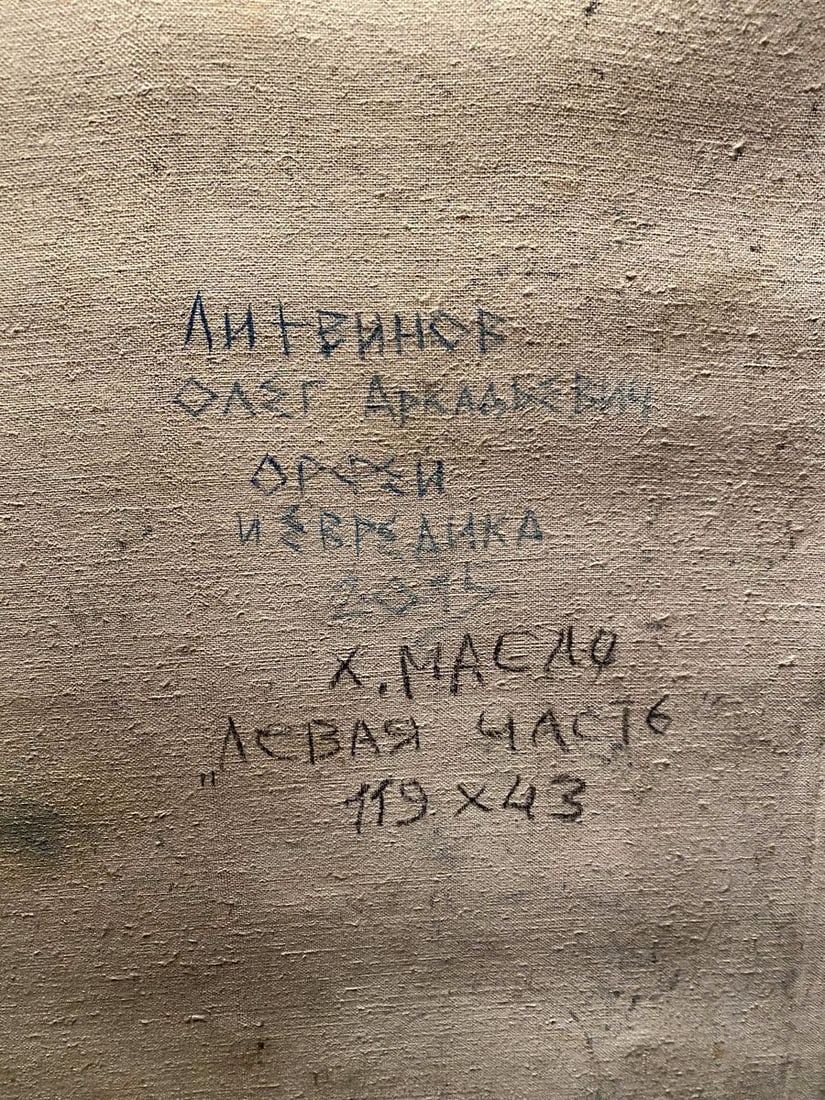 ЛИТВИНОВ
ОЛЕГ АРКАДЬЕВИЧ
ОРФЕЙ
И ЕВРЕДИКА
2013
Х. МАСЛО
„ЛЕВАЯ ЧАСТЬ"
119 х 43